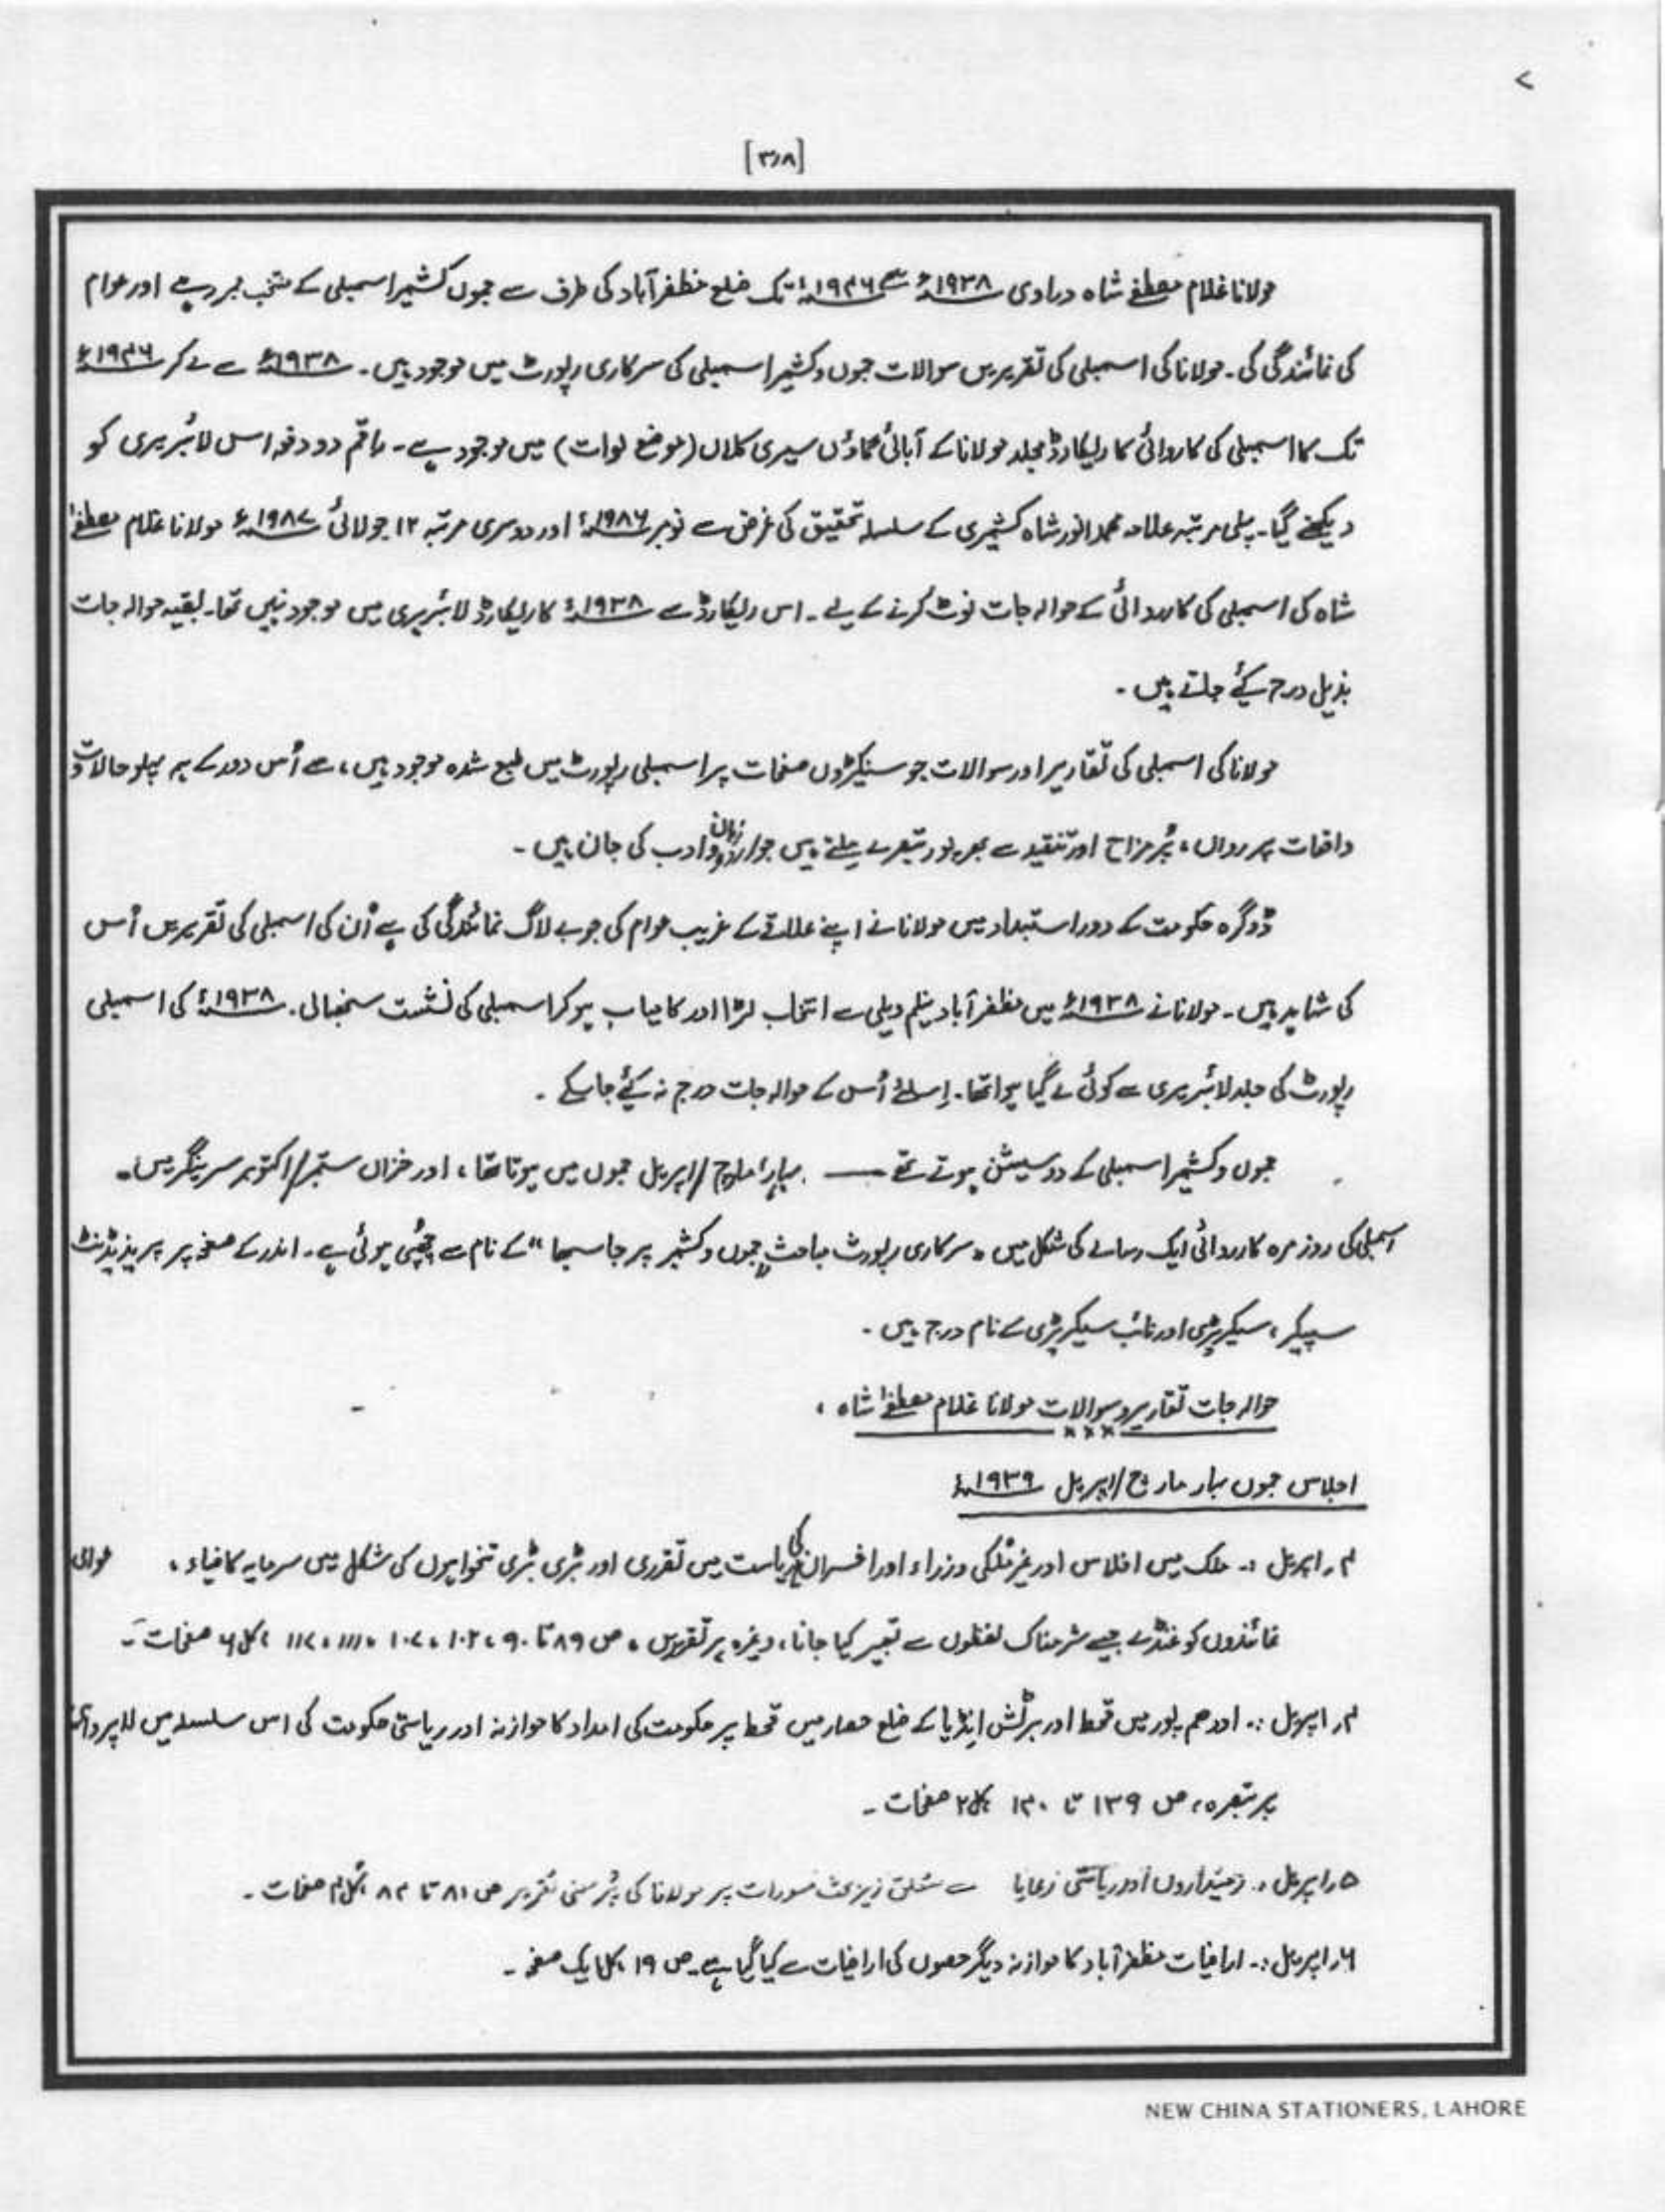 ۷
[۳۰۸]
مولانا غلام مصطفےٰ شاہ دراوی ۱۹۳۸ء سے ۱۹۴۶ء تک ضلع مظفر آباد کی طرف سے جموں کشمیر اسمبلی کے منتخب ممبر رہے اور عوام
کی نمائندگی کی۔ مولانا کی اسمبلی کی تقریریں سوالات جموں و کشمیر اسمبلی کی سرکاری رپورٹ میں موجود ہیں۔ ۱۹۳۸ء سے لے کر ۱۹۴۶ء
تک کا اسمبلی کی کاروائی کا ریکارڈ مجلد مولانا کے آبائی گاؤں سیری کلاں (موضع لوات) میں موجود ہے۔ راقم دو دفعہ اس لائبریری کو
دیکھنے گیا۔ پہلی مرتبہ علامہ محمد انور شاہ کشمیری کے سلسلہ تحقیق کی غرض سے نومبر ۱۹۸۶ء اور دوسری مرتبہ ۱۲ جولائی ۱۹۸۷ء مولانا غلام مصطفےٰ
شاہ کی اسمبلی کی کارروائی کے حوالہ جات نوٹ کرنے کے لیے۔ اس ریکارڈ سے ۱۹۳۸ء کا ریکارڈ لائبریری میں موجود نہیں تھا۔ بقیہ حوالہ جات
بذیل درج کیٔے جاتے ہیں۔
مولانا کی اسمبلی کی تقاریر اور سوالات جو سینکڑوں صفحات پر اسمبلی رپورٹ میں طبع شدہ موجود ہیں، سے اُس دور کے ہر پہلو حالات و
واقعات پر رواں، پُر مزاح اور تنقید سے بھر پور تبصرے ملتے ہیں جو اردو زبان و ادب کی جان ہیں۔
ڈوگرہ حکومت کے دور استبداد میں مولانا نے اپنے علاقے کے غریب عوام کی جو بے لاگ نمائندگی کی ہے اُن کی اسمبلی کی تقریریں اُس
کی شاہد ہیں۔ مولانا نے ۱۹۳۸ء میں مظفر آباد نیلم ویلی سے انتخاب لڑا اور کامیاب ہو کر اسمبلی کی نشست سنبھالی۔ ۱۹۳۸ء کی اسمبلی
رپورٹ کی جلد لائبریری سے کوئی لے گیا ہوا تھا۔ اِسلئے اُس کے حوالہ جات درج نہ کیٔے جا سکے۔
جموں و کشمیر اسمبلی کے دو سیشن ہوتے تھے — بہار مارچ/اپریل جموں میں ہوتا تھا، اور خزاں ستمبر/اکتوبر سرینگر میں۔
اسمبلی کی روز مرہ کارروائی ایک رسالے کی شکل میں "سرکاری رپورٹ مباحث جموں و کشمیر پرجا سبھا" کے نام سے چھپی ہوئی ہے۔ اندر کے صفحہ پر پریذیڈنٹ
سپیکر، سیکریٹری اور نائب سیکریٹری کے نام درج ہیں۔
حوالہ جات تقاریر و سوالات مولانا غلام مصطفےٰ شاہ،
اجلاس جموں بہار مارچ/اپریل ۱۹۳۹ء
۴۔ اپریل :۔ ملک میں افلاس اور غیر مُلکی وزراء اور افسران کی ریاست میں تقرری اور بڑی بڑی تنخواہوں کی شکل میں سرمایہ کا ضیاء، عوامی
نمائندوں کو غنڈے جیسے شرمناک لفظوں سے تعبیر کیا جانا، وغیرہ پر تقریریں۔ ص ۸۹ تا ۹۰، ۱۰۲، ۱۰۷، ۱۱۱، ۱۱۷ ، کل ۶ صفحات۔
۴۔ اپریل :۔ اودھم پور میں قحط اور برٹش اِنڈیا کے ضلع حصار میں قحط پر حکومت کی امداد کا موازنہ اور ریاستی حکومت کی اس سلسلہ میں لاپرواہی
پر تبصرہ، ص ۱۳۹ تا ۱۴۰ کل ۲ صفحات۔
۵۔ اپریل :۔ زمینداروں اور ریاستی رعایا سے متعلق زیر بحث مسودات پر مولانا کی پُر مغز تقریر ص ۸۱ تا ۸۴، کل ۴ صفحات۔
۶۔ اپریل :۔ اراضیات مظفر آباد کا موازنہ دیگر حصوں کی اراضیات سے کیا گیا ہے۔ ص ۱۹ ، کل ایک صفحہ۔
NEW CHINA STATIONERS, LAHORE